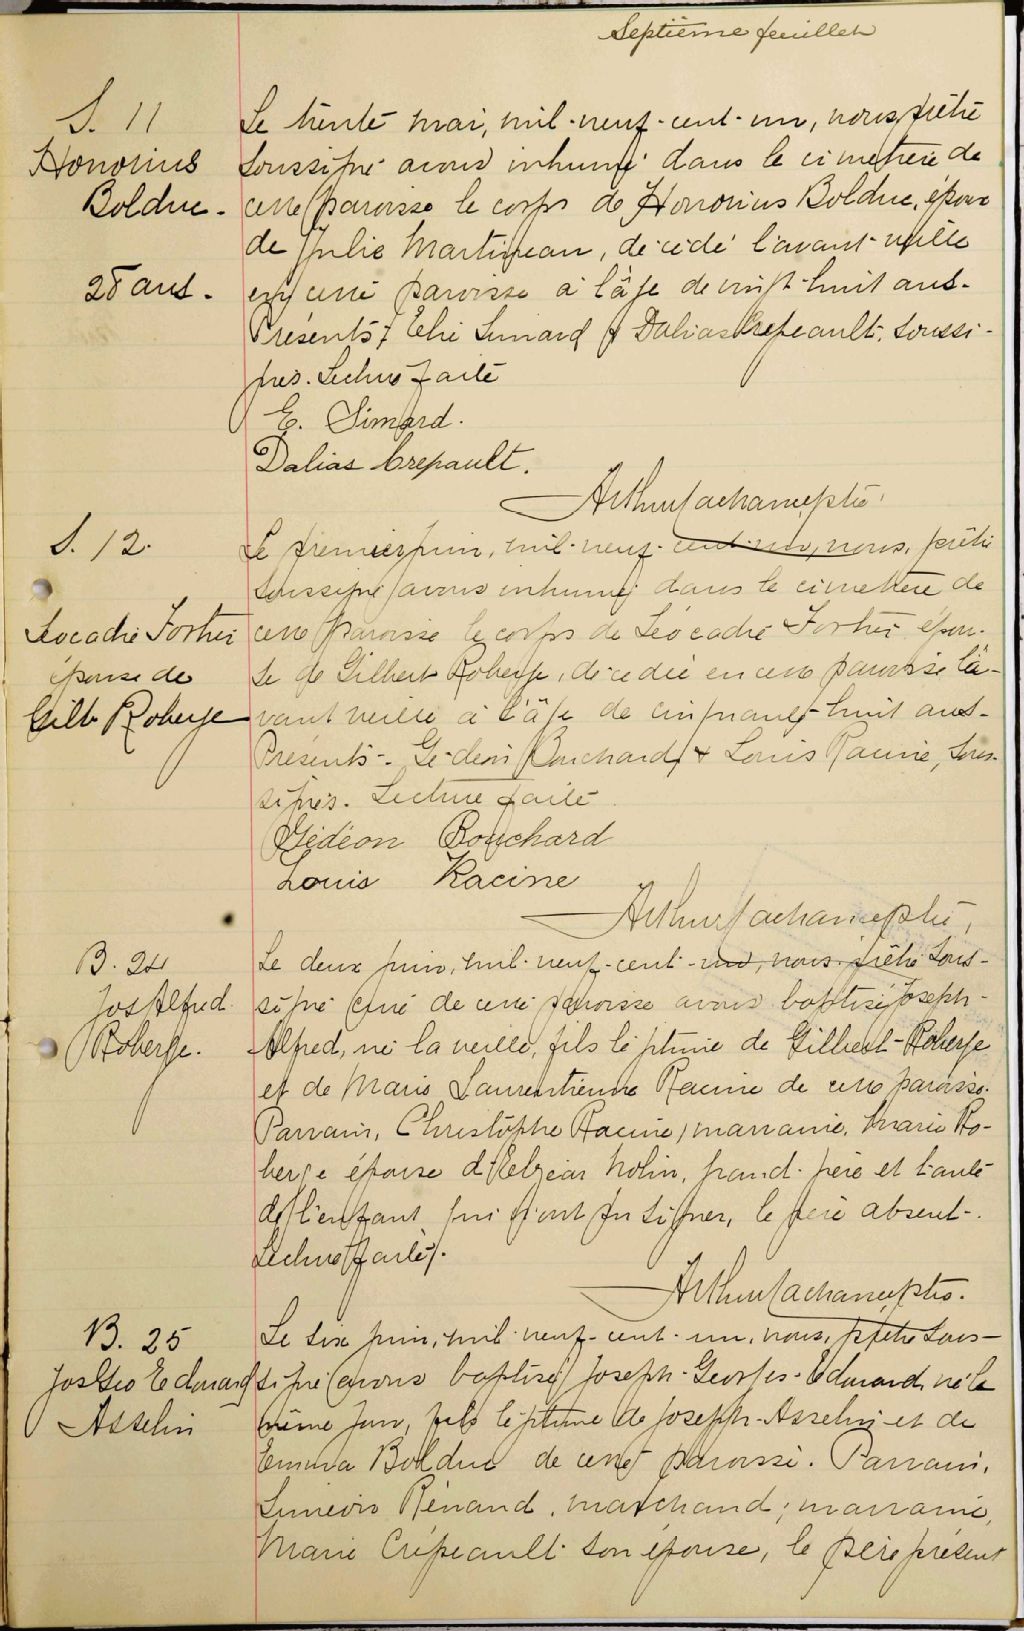 Septième feuillet
S. 11
Honorius
Bolduc.
28 ans.
Le trente mai, mil-neuf-cent-un, nous, prêtre
soussigné avons inhumé dans le cimetière de
cette paroisse le corps de Honorius Bolduc, époux
de Julie Martineau, décédé l'avant-veille
en cette paroisse à l'âge de vingt-huit ans.
Présents, Elie Simard & Dalias Crepeault, soussi-
gnés. Lecture faite
E. Simard.
Dalias Crepault.
Arthur Lachance, ptre.
S. 12.
Léocadie Fortier
épouse de
Gilb Roberge
Le premier juin, mil-neuf-cent-un, nous, prêtre
soussigné avons inhumé dans le cimetière de
cette paroisse le corps de Léocadie Fortier épou-
se de Gilbert Roberge, décédée en cette paroisse l'a-
vant veille à l'âge de cinquante-huit ans.
Présents. Gédéon Bouchard & Louis Racine, sous-
signés. Lecture faite
Gédéon Bouchard
Louis Racine
Arthur Lachance ptre,
B. 24
Jos Alfred
Roberge.
Le deux juin, mil-neuf-cent-un, nous, prêtre sous-
signé curé de cette paroisse avons baptisé Joseph-
Alfred, né la veille, fils légitime de Gilbert Roberge
et de Marie Laurentienne Racine de cette paroisse.
Parrain, Christophe Racine, marraine, Marie Ro-
berge épouse d'Elzéar Nolin, grand-père et tante
de l'enfant qui n'ont pu signer, le père absent.
Lecture faite.
Arthur Lachance, ptre.
B. 25
Jos Geo Edouard
Asselin
Le six juin, mil-neuf-cent-un, nous, prêtre sous-
signé avons baptisé Joseph-Georges-Edouard, né le
même jour, fils légitime de Joseph Asselin et de
Emma Bolduc de cette paroisse. Parrain,
Siméon Rénaud, marchand; marraine,
Marie Crépeault son épouse, le père présent